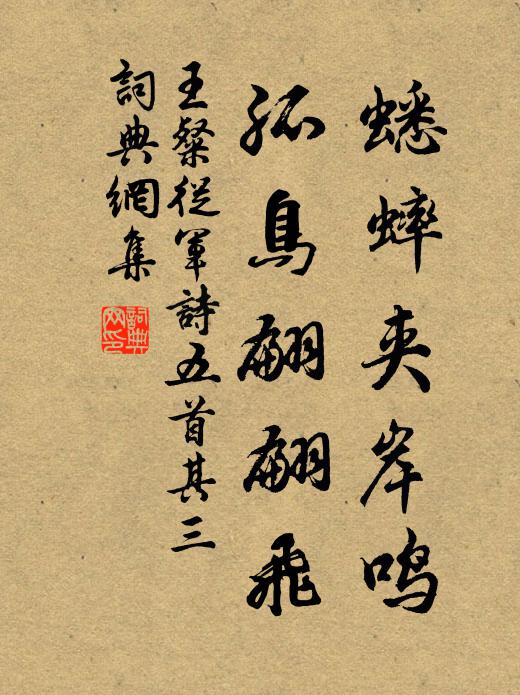 蟋蟀夹岸鸣
孤鳥翩翩飛
王粲従軍詩五首其三
詞典網集
詞典网印